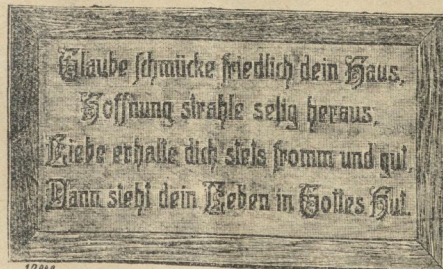 Glaube schmücke friedlich dein Haus,
Hoffnung strahle selig heraus,
Liebe erhalte dich stets fromm und gut,
Dann steht dein Leben in Gottes Hut.